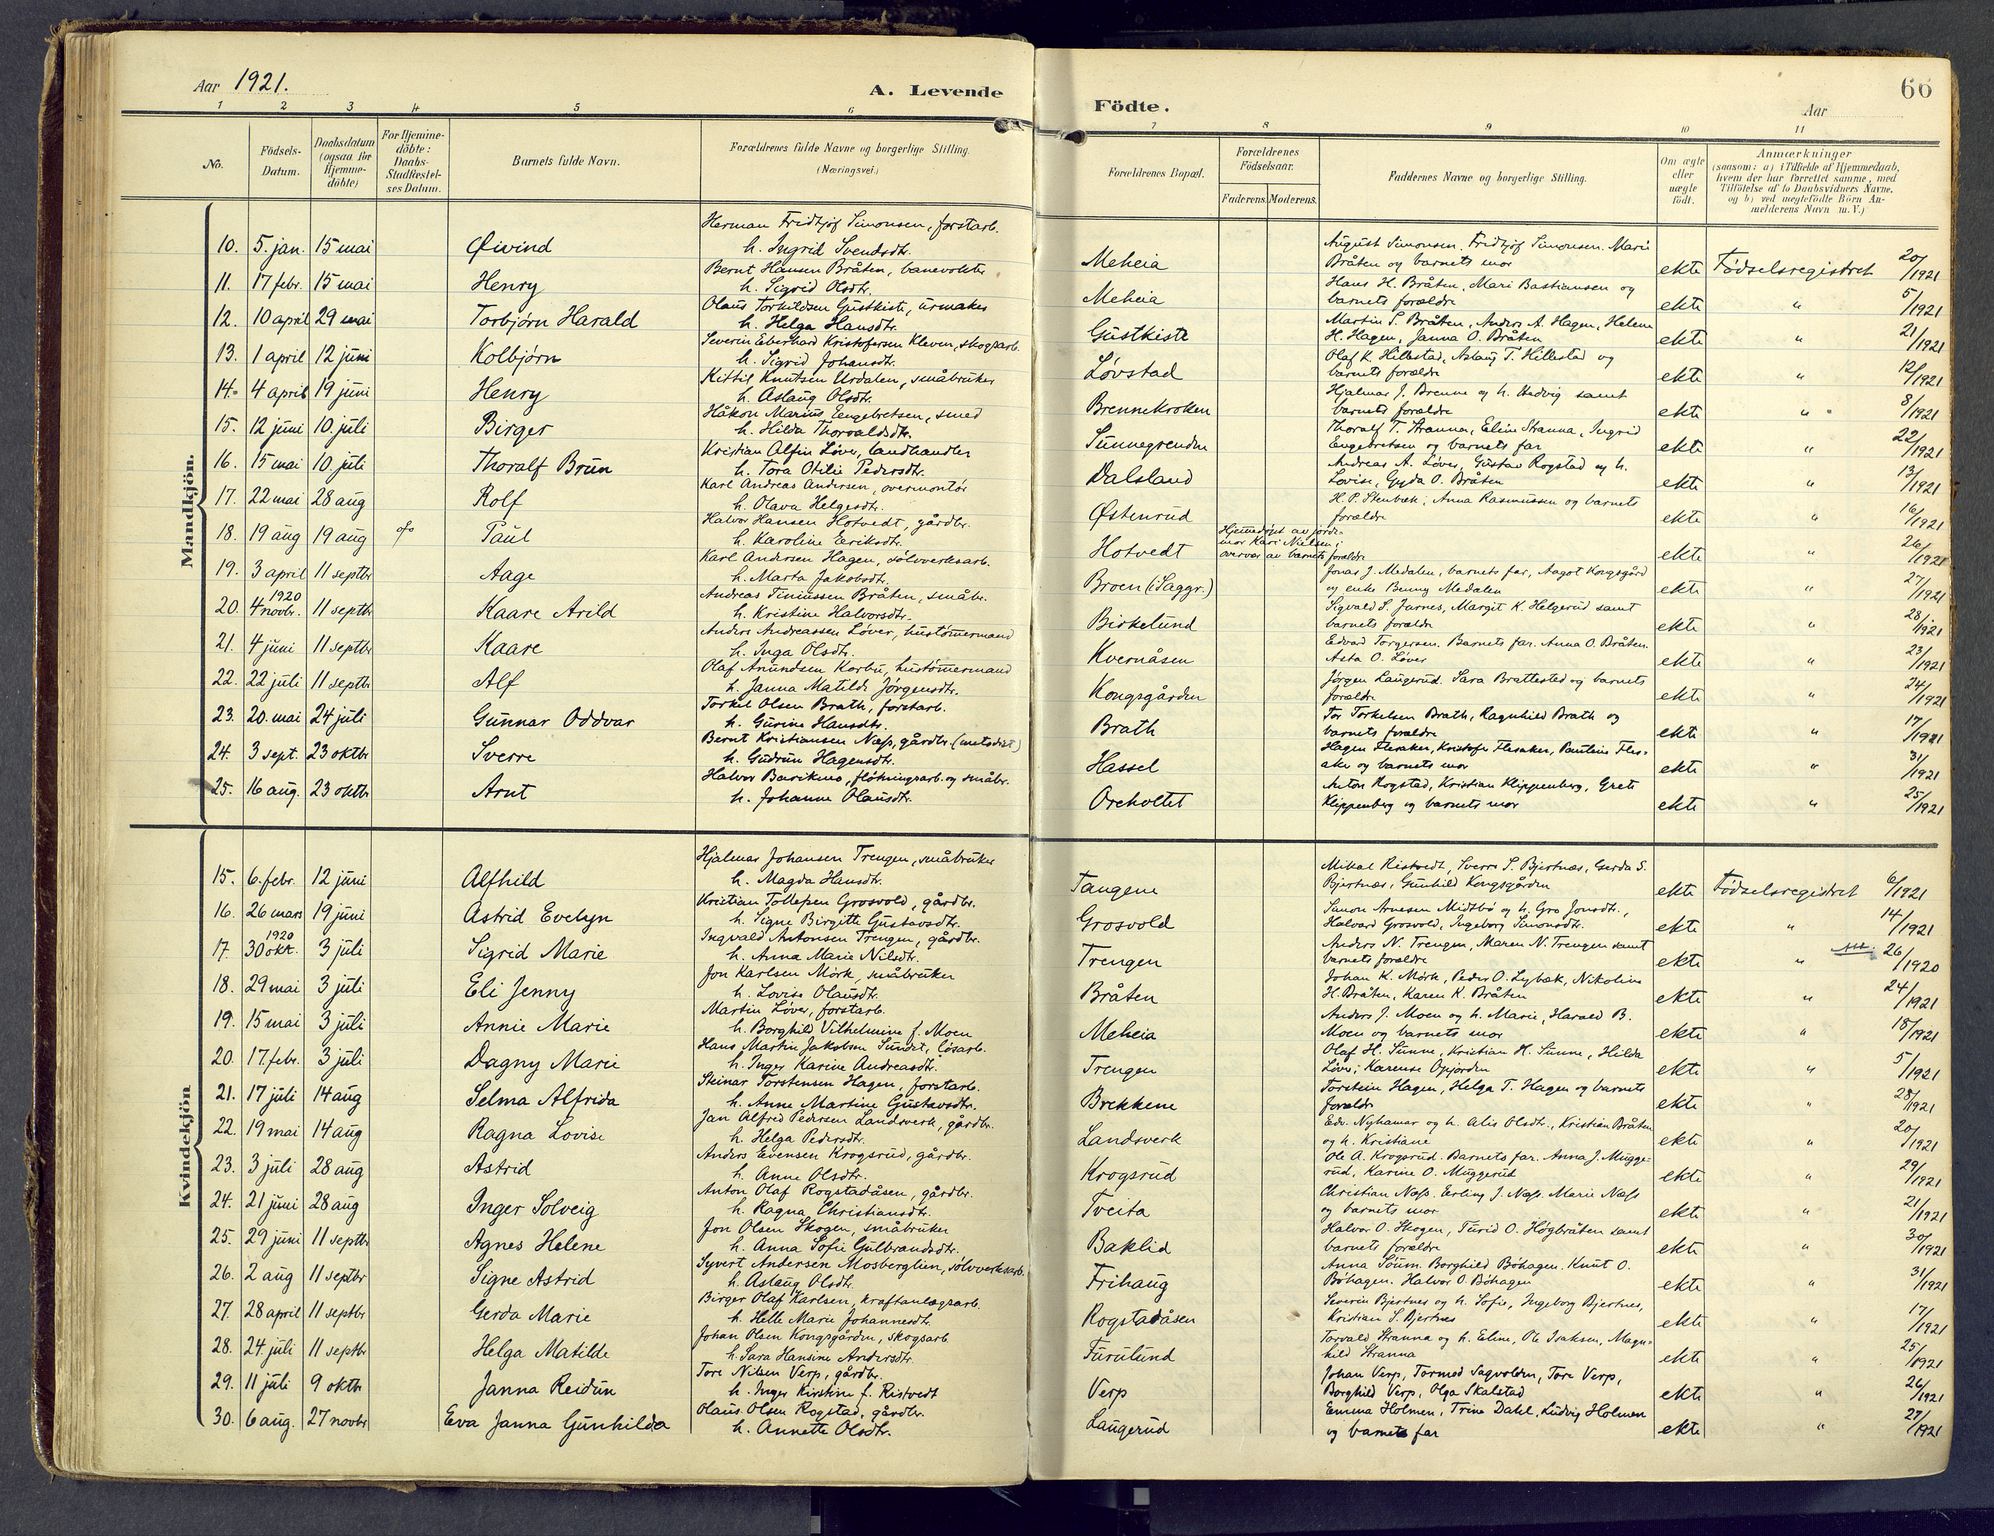 Aar 1921.
A. Levende
1 2 3 4 5 6
No.
Födsels-Datum.
Daabsdatum (ogsaa for Hjemme-döbte)
For Hjemme-döbte: Daabs-Stadfæstel-ses Datum.
Barnets fulde Navn.
Forældrenes fulde Navne og borgerlige Stilling.
(Næringsvei.)
Mandkjön.
Herman Fridtjof Simonsen, forstarb.
10. 5. jan. 15 mai Øivind h. Ingrid Svendsdtr.
Bernt Hansen Bråten, banevokter
11. 17 febr. 15 mai Henry h. Sigrid Olsdtr.
Olaus Torkildsen Gustkiste, urmaker
12. 10 april 29 mai Torbjørn Harald h. Helga Hansdtr.
Severin Eberhard Kristofersen Kleven, skogsarb.
13. 1 april 12 juni Kolbjørn h. Sigrid Johansdtr.
Kittil Knutsen Urdalen, småbruker
14. 4 april 19 juni Henry h. Aslaug Olsdtr.
Håkon Marius Engebretsen, smed
15. 12 juni 10. juli Birger h. Hilda Thorvaldsdtr.
Kristian Alfin Løver, landhandler
16. 15 mai 10 juli Thoralf Brun h. Tora Otilie Pedersdtr.
Karl Andreas Andersen, overmontør
17. 22 mai 28 aug Rolf h. Olava Helgesdtr.
Halvor Hansen Hotvedt, gårdbr.
18. 19 aug 19 aug Paul h. Karoline Eriksdtr.
Karl Andersen Hagen, sølvverksarb.
19. 3 april 11 septbr Aage h. Marta Jakobsdtr.
Andreas Tiniussen Bråten, småbr.
20. 4 novbr. 1920 11 septbr Kaare Arild h. Kristine Halvorsdtr.
Anders Andreassen Løver, hustømermand
21. 4 juni 11 septbr Kaare h. Inga Olsdtr.
Olaf Amundsen Korbu, hustømermand
22. 22 juli 11 septbr Alf h. Janna Matilde Jørgensdtr.
Torkel Olsen Brath, forstarb.
23. 20. mai 24 juli Gunnar Oddvar h. Gurine Hansdtr.
Bernt Kristiansen Næss, gårdbr. (metodist)
24. 3 sept. 23 oktbr Sverre h. Gudrun Hagensdtr.
Halvor Barikmo, fløtningsarb. og småbr.
25. 16 aug. 23 oktbr Arnt h. Johanne Olausdtr.
Kvindekjön
Hjalmar Johansen Trengen, småbruker
15. 6. febr. 12 juni Alfhild h. Magda Hansdtr.
Kristian Tollefsen Grosvold, gårdbr.
16. 26 mars 19 juni Astrid Evelyn h. Signe Birgitte Gustavsdtr.
Ingvald Antonsen Trengen, gårdbr.
17. 30 okt. 1920 3 juli Sigrid Marie h. Anna Marie Nilsdtr.
Jon Karlsen Mörk, småbruker
18. 29 mai 3 juli Eli Jenny h. Lovise Olausdtr.
Martin Løver, forstarb.
19. 15 mai 3 juli Annie Marie h. Borghild Vilhelmine f. Moen
Hans Martin Jakobsen Sundet, løsarb.
20. 17. febr. 3 juli Dagny Marie h. Inger Karine Andreasdtr.
Steinar Torstensen Hagen, forstarb.
21. 17 juli 14 aug Selma Alfrida h. Anne Martine Gustavsdtr.
Jan Alfred Pedersen Landsverk, gårdbr.
22. 19 mai 14 aug Ragna Lovise h. Helga Pedersdtr.
Anders Evensen Krogsrud, gårdbr.
23. 3 juli 28 aug Astrid h. Anne Olsdtr.
Anton Olaf Rogstadåsen, gårdbr.
24. 21 juni 28 aug Inger Solveig h. Ragna Christiansdtr.
Jon Olsen Skogen, småbruker
25. 29 juni 11 septbr Agnes Helene h. Anna Sofie Gulbrandsdtr.
Syvert Andersen Mosberglien, sølvverksarb.
26. 2 aug 11 septbr Signe Astrid h. Aslaug Olsdtr.
Birger Olaf Karlsen, kraftanlægsarb.
27. 28 april 11 septbr Gerda Marie h. Helle Marie Johannesdtr.
Johan Olsen Kongsgården, skogsarb.
28. 24. juli 11 septbr Helga Matilde h. Sara Hansine Andersdtr.
Tore Nilsen Verp, gårdbr.
29. 11 juli 9 oktbr Janna Reidun h. Inger Kirstine f. Ristvedt
Olaus Olsen Rogstad, gårdbr.
30. 6 aug. 27 novbr. Eva Janna Gunhilda h. Annette Olsdtr.
66
Födte.
Aar
7 8 9 10 11
Forældrenes Bopæl.
Forældrenes Födselsaar.
Faderens. Moderens.
Faddernes Navne og borgerlige Stilling.
Om ægte eller uægte födt.
Anmærkninger
(saasom: a) i Tilfælde af Hjemmedaab, hvem der har forrettet samme, med Tilföielse af to Daabsvidners Navne, og b) ved uægtefödte Börn An-melderens Navn m. V.)
August Simonsen. Fridtjof Simonsen. Marie
Meheia Bråten og barnets mor ekte Fødselsregistret 20/1921
Hans H. Bråten, Mari Bastiansen og
Meheia barnets forældre ekte " 5/1921
Martin S. Bråten, Anders A. Hagen, Helene
Gustkiste H. Hagen, Janna O. Bråten ekte " 21/1921
Olaf K. Hillestad, Aslaug T. Hillestad og
Løvstad barnets forældre ekte " 12/1921
Hjalmar J. Brenne og h. Hedvig samt
Brennekroken barnets forældre ekte " 8/1921
Thoralf T. Stranna, Eline Stranna, Ingrid
Sunnegrenden Engebretsen og barnets far ekte " 22/1921
Andreas A. Løver, Gustav Rogstad og h.
Dalsland Lovise, Gyda O. Bråten ekte " 13/1921
H. P. Stenbæk, Anna Rasmussen og barnets
Østenrud forældre ekte " 16/1921
Hotvedt Hjemmedøpt av jorde-mor Kari Nielsen; overvær av barnets forældre ekte " 26/1921
Jonas J. Medalen, barnets far, Aagot Kongsgård
Broen (i Saggr.) og enke Benny Medalen ekte " 27/1921
Sigvald S. Jarnes, Margit K. Helgerud samt
Birkelund barnets forældre ekte " 28/1921
Edvard Torgersen. Barnets far. Anna O. Bråten.
Kvernåsen Asta O. Løver ekte " 23/1921
Jørgen Laugerud. Sara Brattested og barnets
Kongsgården forældre ekte " 24/1921
Tor Torkelsen Brath, Ragnhild Brath og
Brath barnets forældre ekte " 17/1921
Hagen Flesaker, Kristofer Flesaker, Pauline Fles-
Hassel aker og barnets mor ekte " 31/1921
Anton Rogstad, Kristian Klippenberg, Grete
Oreholtet Klippenberg og barnets mor ekte " 25/1921
Mikal Ristvedt, Sverre S. Bjertnæs, Gerda S.
Tangene Bjertnæs, Gunhild Kongsgården ekte Fødselsregistret 6/1921
Simon Arnesen Midtbø og h. Gro Jonsdtr.,
Grosvold Halvard Grosvold, Ingeborg Simonsdtr. ekte " 14/1921
Anders N. Trengen, Maren N. Trengen samt
Trengen barnets forældre ekte " 26/1920
Johan K. Mörk, Peder O. Lybæk, Nikoline
Bråten H. Bråten, Karen K. Bråten ekte " 24/1921
Anders J. Moen og h. Marie, Harald B.
Meheia Moen og barnets mor ekte " 18/1921
Olaf H. Sunne, Kristian H. Sunne, Hilda
Trengen Løver, Karense Opjorden ekte " 5/1921
Torstein Hagen, Helga T. Hagen og barnets
Brekkene forældre ekte " 28/1921
Edv. Nyhamar og h. Alis Olsdtr., Kristian Bråten
Landsverk og h. Kristiane ekte " 20/1921
Ole A. Krogsrud. Barnets far. Anna J. Mugge-
Krogsrud rud, Karine O. Muggerud ekte " 29/1921
Christian Næss. Erling J. Næss. Marie Næss
Tveita og barnets mor ekte " 21/1921
Halvor O. Skogen, Turid O. Høgbråten samt
Baklid barnets forældre ekte " 30/1921
Anna Soum. Borghild Bøhagen. Knut O.
Frihaug Bøhagen. Halvor O. Bøhagen ekte " 31/1921
Severin Bjertnes og h. Sofie, Ingeborg Bjertnes,
Rogstadåsen Kristian S. Bjertnes ekte " 17/1921
Torvald Stranna og h. Eline, Ole Isaksen, Magn-
Furulund hild Stranna ekte " 25/1921
Johan Verp, Tormod Sagvolden, Tore Verp,
Verp Borghild Verp, Olga Skalstad ekte " 26/1921
Emma Holmen, Trine Dahl, Ludvig Holmen
Laugerud og barnets far ekte " 27/1921